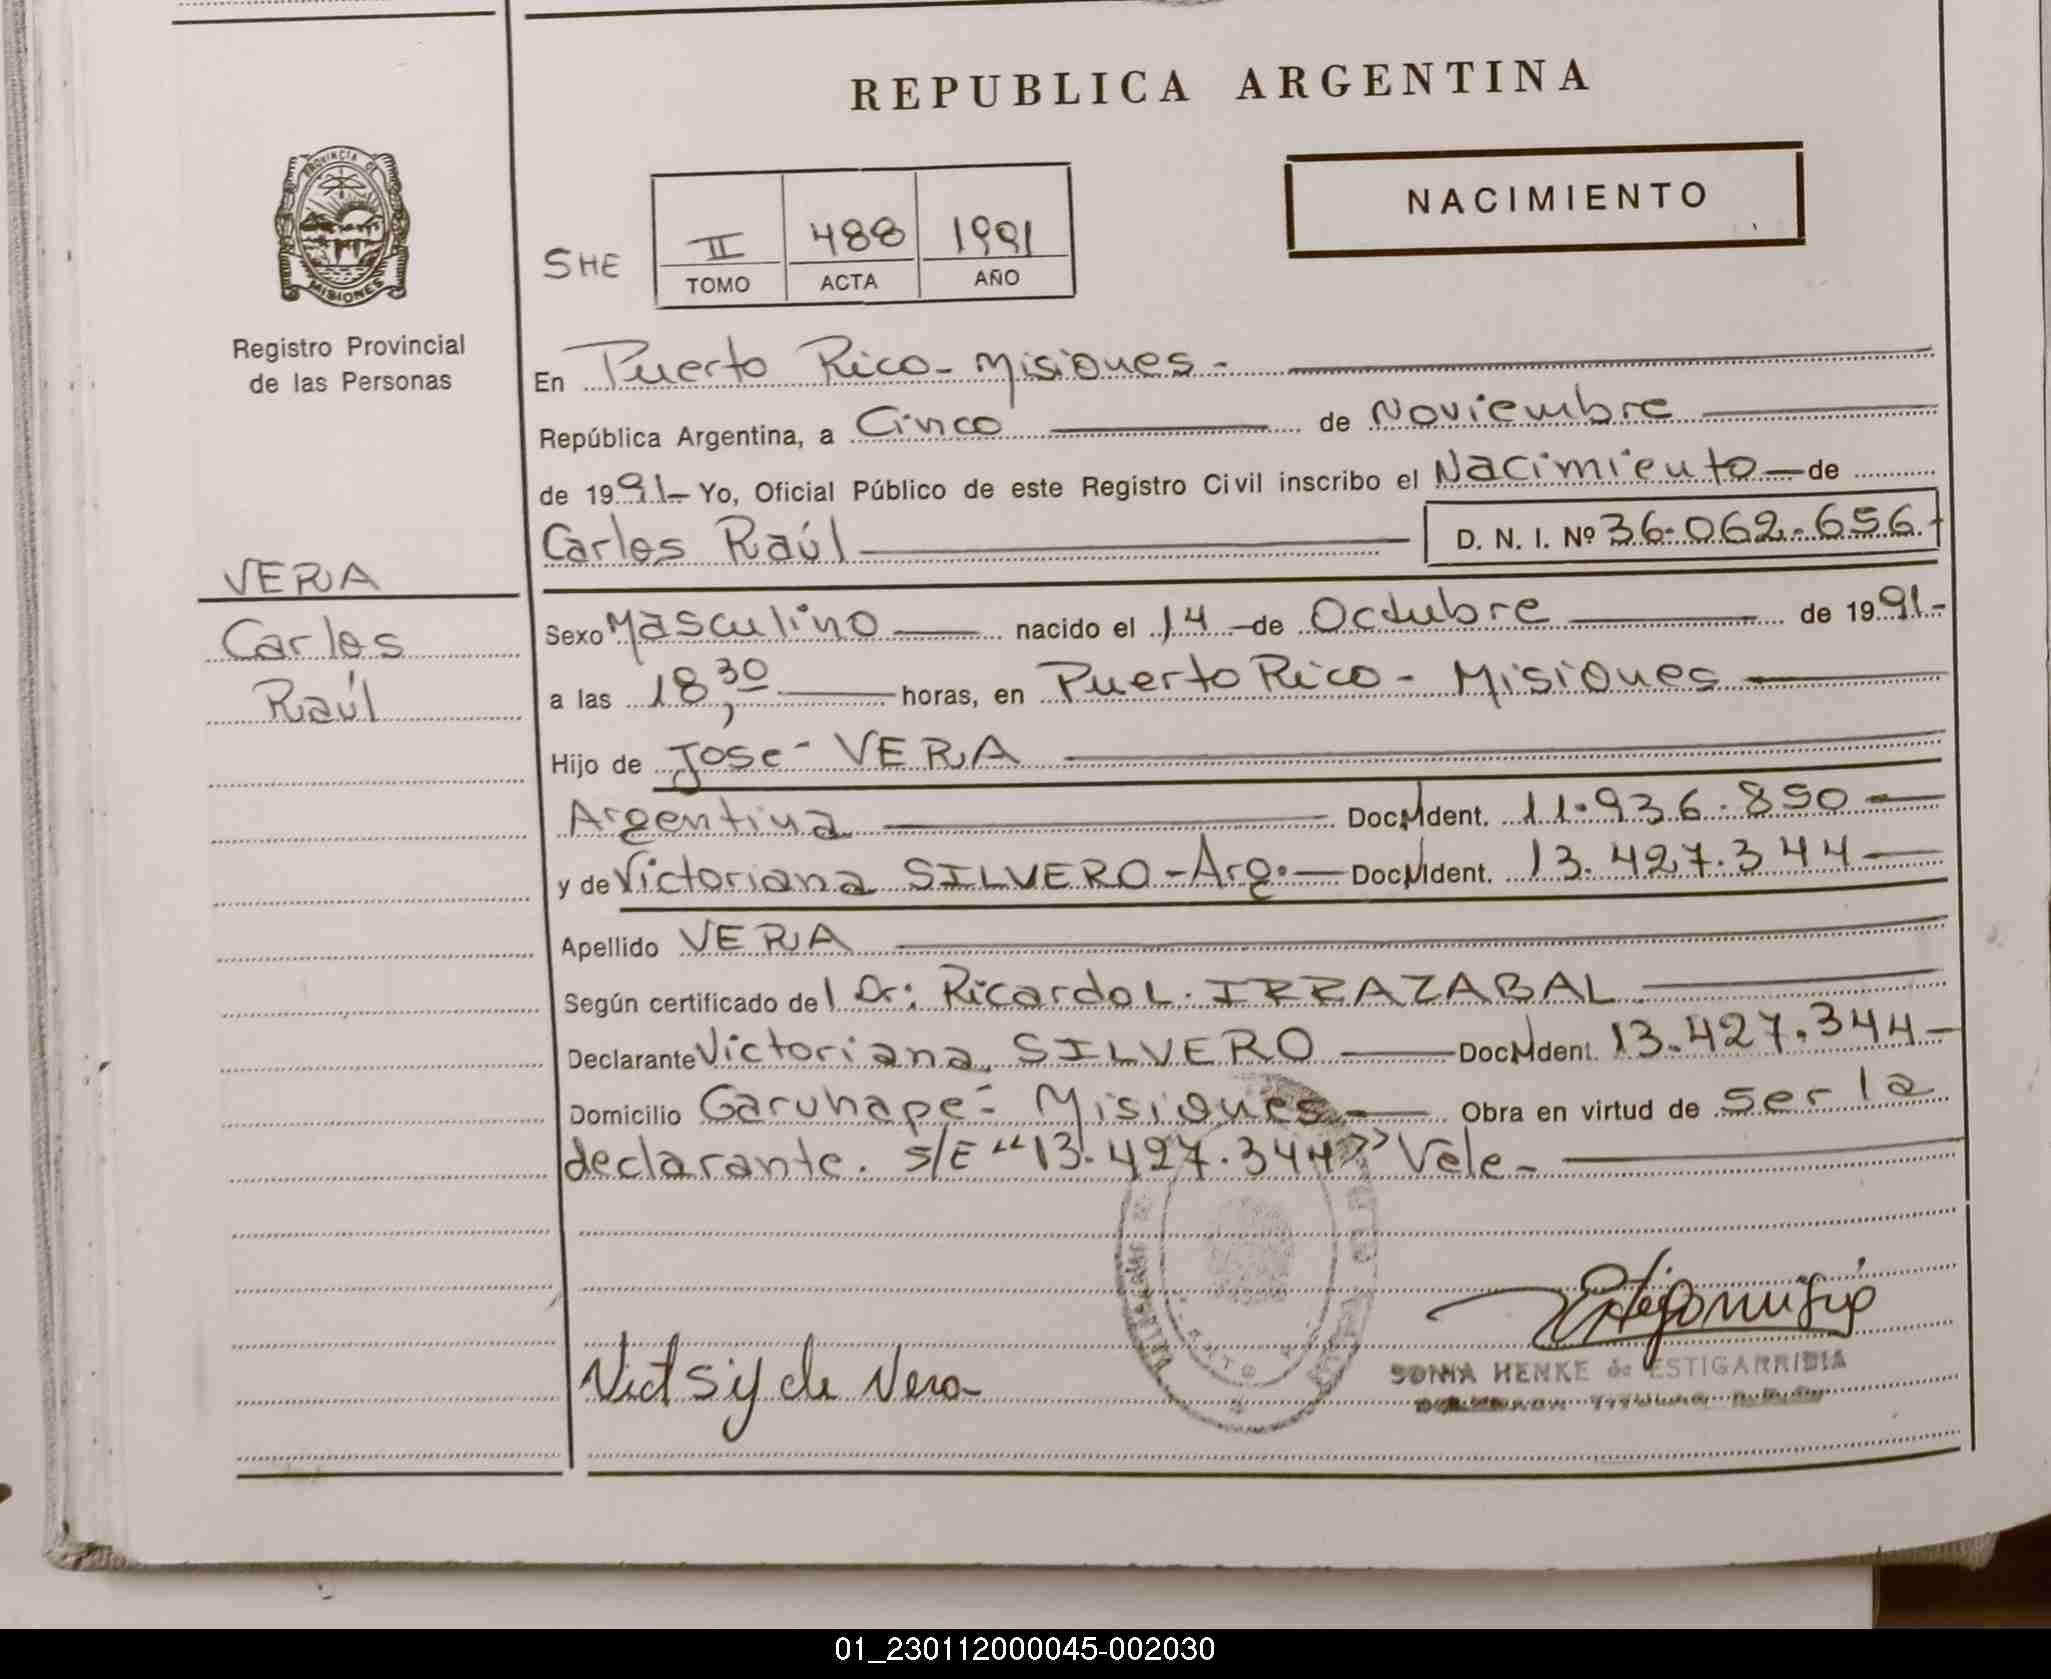 REPUBLICA ARGENTINA
NACIMIENTO
PROVINCIA DE
MISIONES
Registro Provincial
de las Personas
SHE
II 488 1991
TOMO ACTA AÑO
En Puerto Rico - Misiones -
República Argentina, a Cinco de Noviembre
de 1991- Yo, Oficial Público de este Registro Civil inscribo el Nacimiento de
Carlos Raúl D. N. I. Nº 36.062.656.-
VERA
Carlos
Raúl
Sexo Masculino nacido el 14 de Octubre de 1991-
a las 18,30 horas, en Puerto Rico - Misiones
Hijo de José VERA
Argentina Doc. Ident. 11.936.890
y de Victoriana SILVERO - Arg. Doc. Ident. 13.427.344
Apellido VERA
Según certificado del Dr: Ricardo L. IRRAZABAL
Declarante Victoriana SILVERO Doc. Ident. 13.427.344-
Domicilio Garuhapé - Misiones Obra en virtud de ser la
declarante. S/E "13.427.344" Vale -
Vict Sil de Vera
SONIA HENKE de ESTIGARRIBIA
01_230112000045-002030